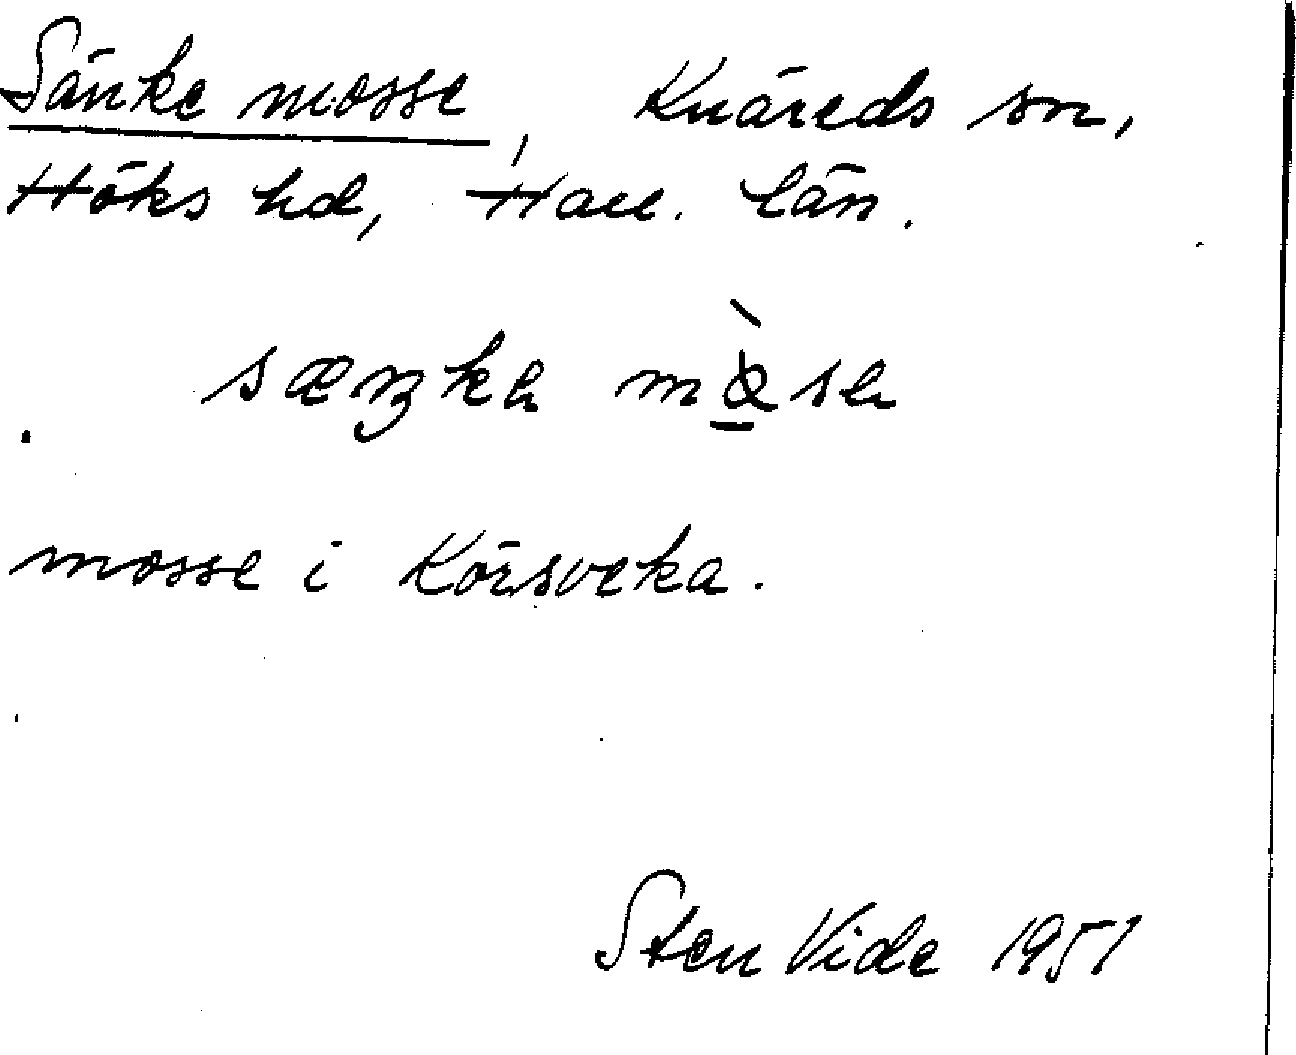 Sänke mosse, Knäreds sn,
Höks hd, Hall. län.
mosse i Körsveka.
Sten Vide 1951